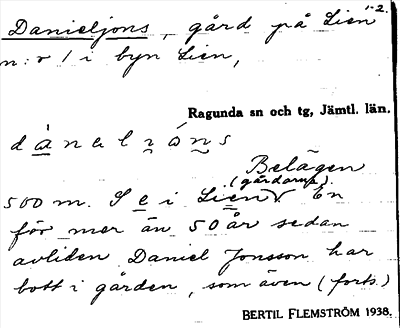 Danieljons, gård på Lien 1-2.
n:r 1 i byn Lien,
Ragunda sn och tg, Jämtl. län.
Belägen
(gårdarna).
500 m. S e i Lien. En
för mer än 50 år sedan
avliden Daniel Jonsson har
bott i gården, som även (forts.)
BERTIL FLEMSTRÖM 1938.